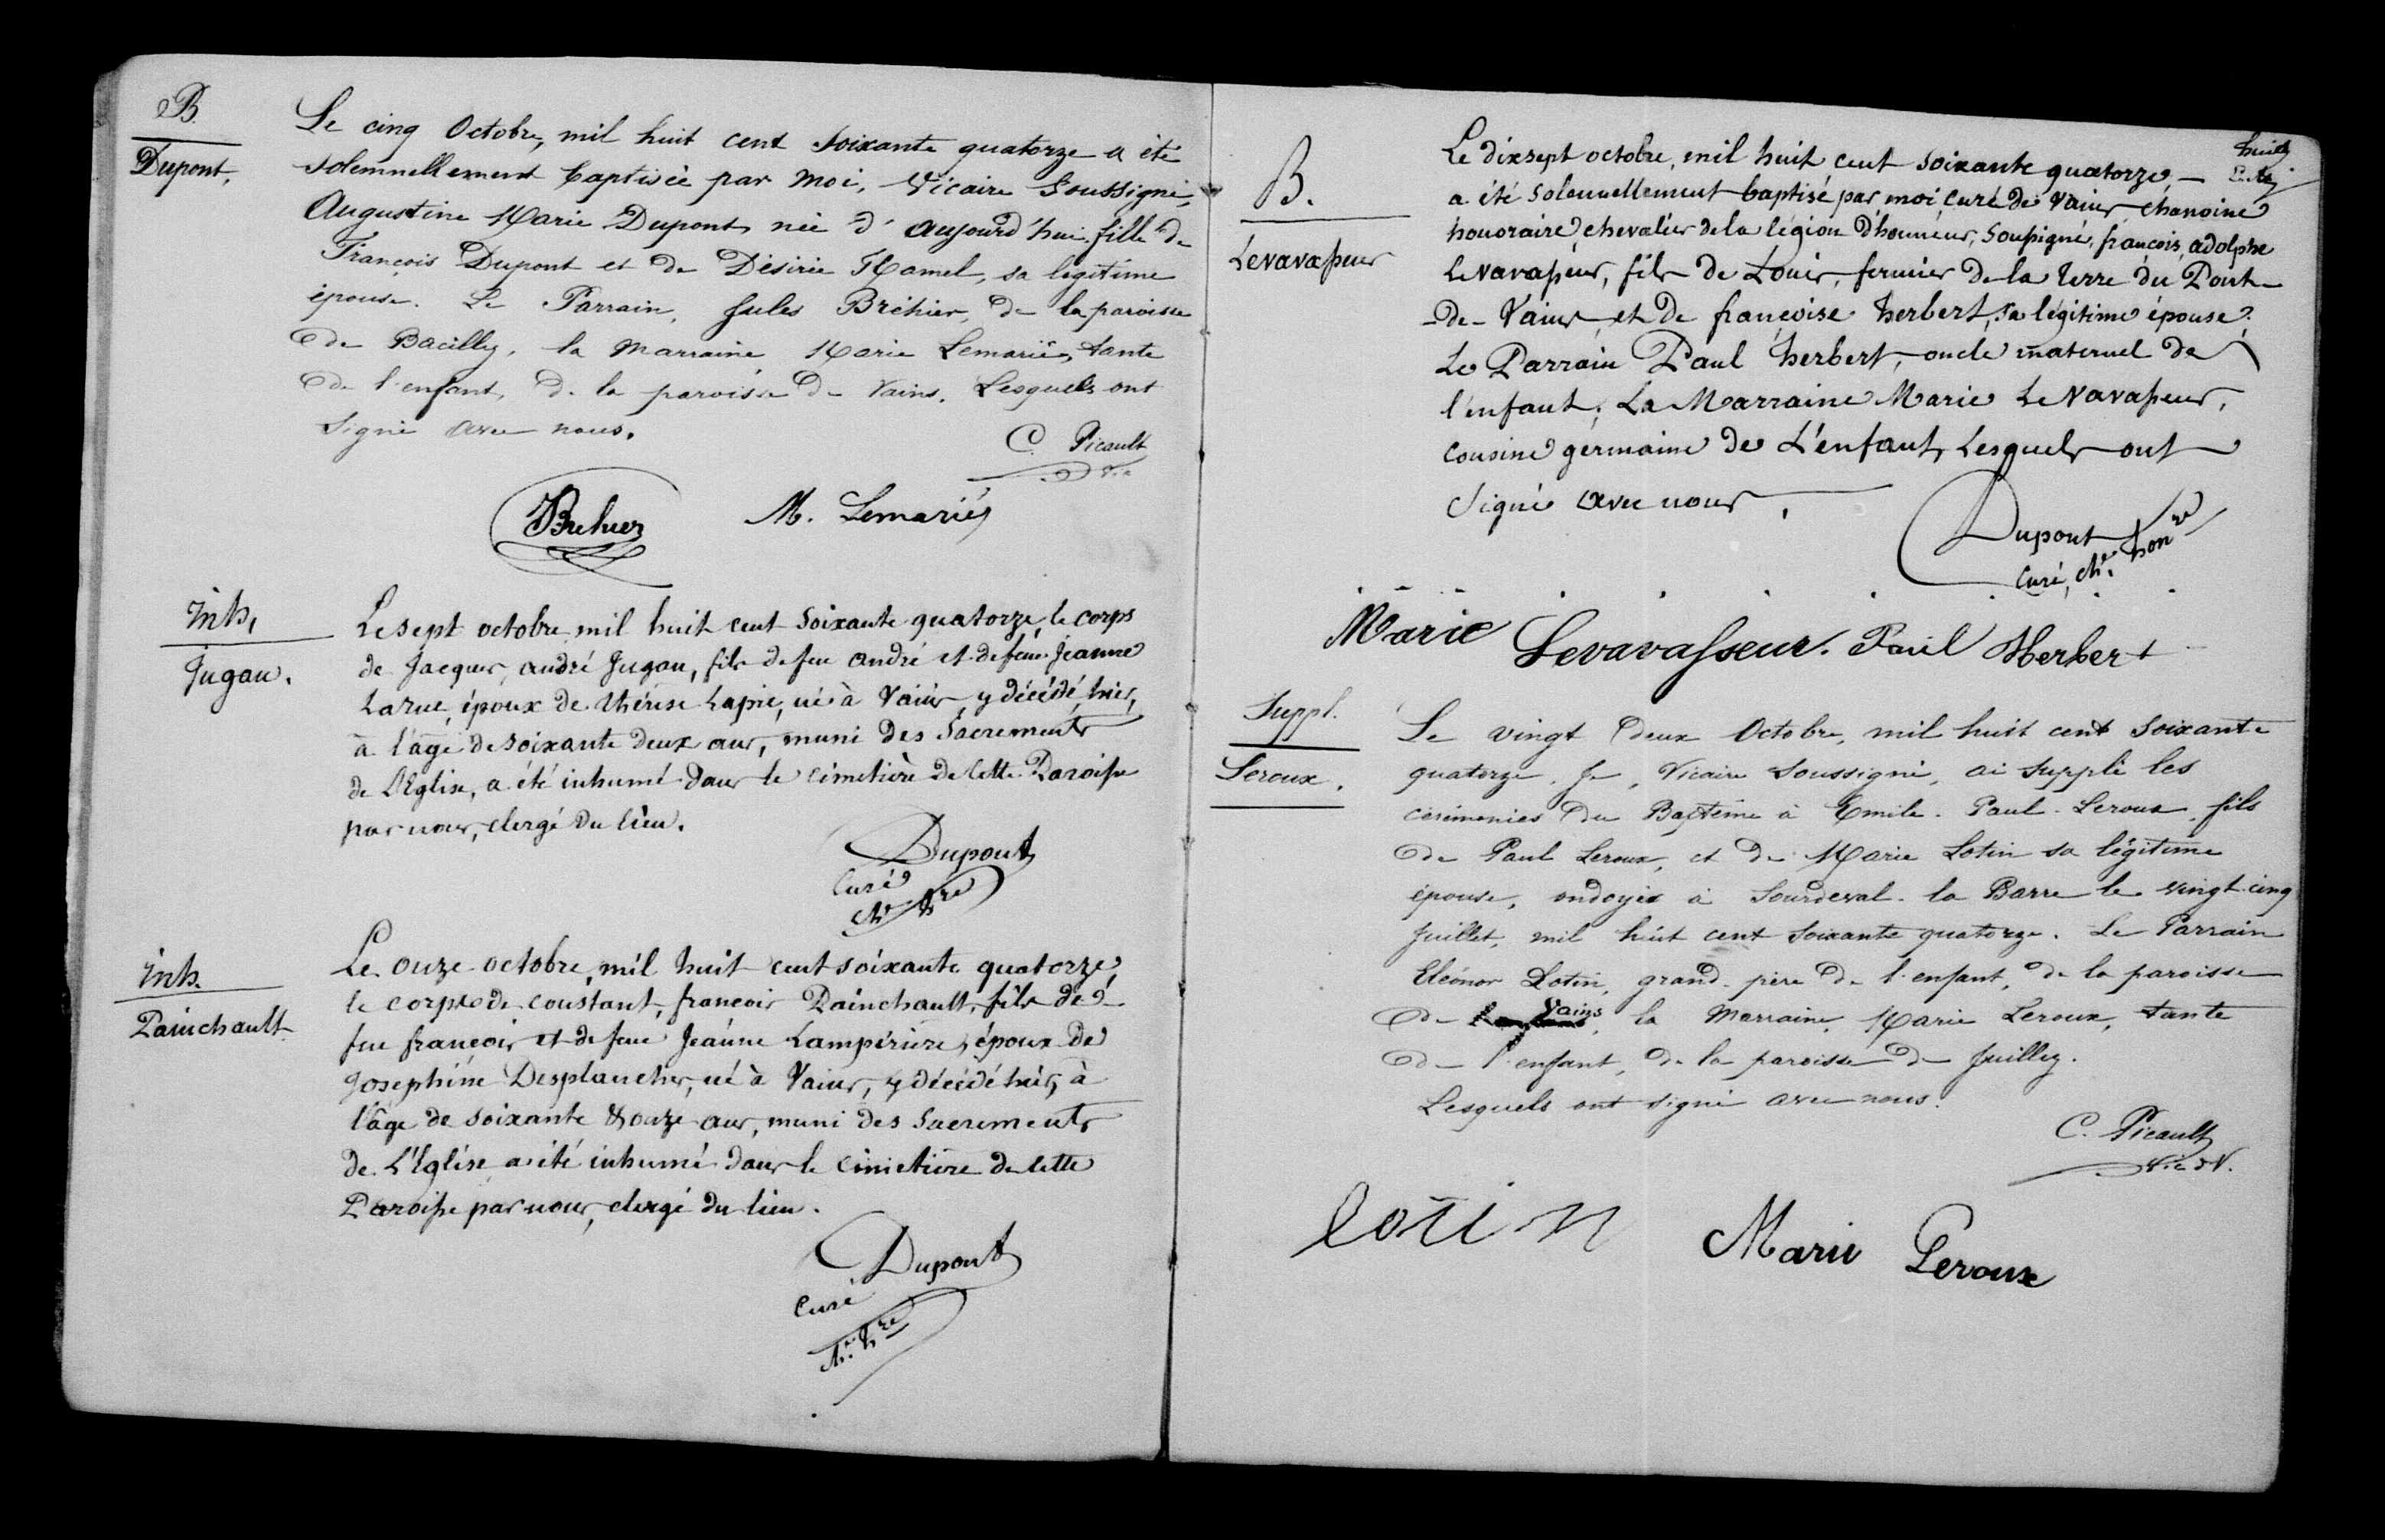 B.
Dupont.
Le cinq Octobre, mil huit cent soixante quatorze a été
solemnellement baptisée par moi, Vicaire Soussigné,
Augustine Marie Dupont, née d'aujourd'hui, fille de
François Dupont et de Désirée Hamel, sa légitime
épouse. Le Parrain, Jules Bréhier, de la paroisse
de Bacilly, la marraine Marie Lemarié, tante
de l'enfant, de la paroisse de Vains. Lesquels ont
signé avec nous.
C. Picault
Vic
Brehier M. Lemarié
Inh.
Jugan.
Le sept octobre mil huit cent soixante quatorze, le corps
de Jacques, andré Jugan, fils de feu andré et de feue Jeanne
Larue, époux de thérèse Lapie, né à Vains, y décédé, hier,
à l'âge de soixante deux ans, muni des Sacrements
de L'Eglise, a été inhumé dans le cimetière de Cette Paroisse
par nous, clergé du lieu.
Dupont
Curé
che hre
Inh.
Painchault
Le onze octobre, mil huit cent soixante quatorze,
le corps de constant, françois Painchault, fils de
feu françois et de feue Jeanne Lampérière, époux de
Josephine Desplanches, né à Vains, y décédé hier, à
l'âge de soixante & onze ans, muni des Sacrements
de L'Eglise, a été inhumé dans le cimetière de Cette
Paroisse par nous, clergé du lieu.
Dupont
Curé
che hre
B.
Levavasseur
Le dixsept octobre, mil huit cent soixante quatorze,
a été solennellement baptisé par moi curé de Vains, chanoine
honoraire, chevalier de la légion d'honneur, soussigné, françois, adolphe
Levavasseur, fils de Louis, fermier de la terre du Pont-
-de-Vains, et de françoise herbert, sa légitime épouse.
Le Parrain Paul herbert, oncle maternel de
l'enfant; La Marraine Marie Levavasseur,
cousine germaine de L'enfant, Lesquels ont
signé avec nous.
Dupont
Curé, che honre
Marie Levavasseur. Paul Herbert
Suppl.
Leroux.
Le vingt deux Octobre, mil huit cent soixante
quatorze, Je, Vicaire Soussigné, ai supplé les
cérémonies du Baptême à Emile-Paul-Leroux, fils
de Paul Leroux, et de Marie Lotin sa légitime
épouse, ondoyé à Sourdeval-la Barre le vingt-cinq
Juillet, mil huit cent soixante quatorze. Le Parrain
Eléonor Lotin, grand-père de l'enfant, de la paroisse
de Vains, la Marraine, Marie Leroux, tante
de l'enfant, de la paroisse de Juilley.
Lesquels ont signé avec nous.
C. Picault
Vic d V.
Lotin Marie Leroux